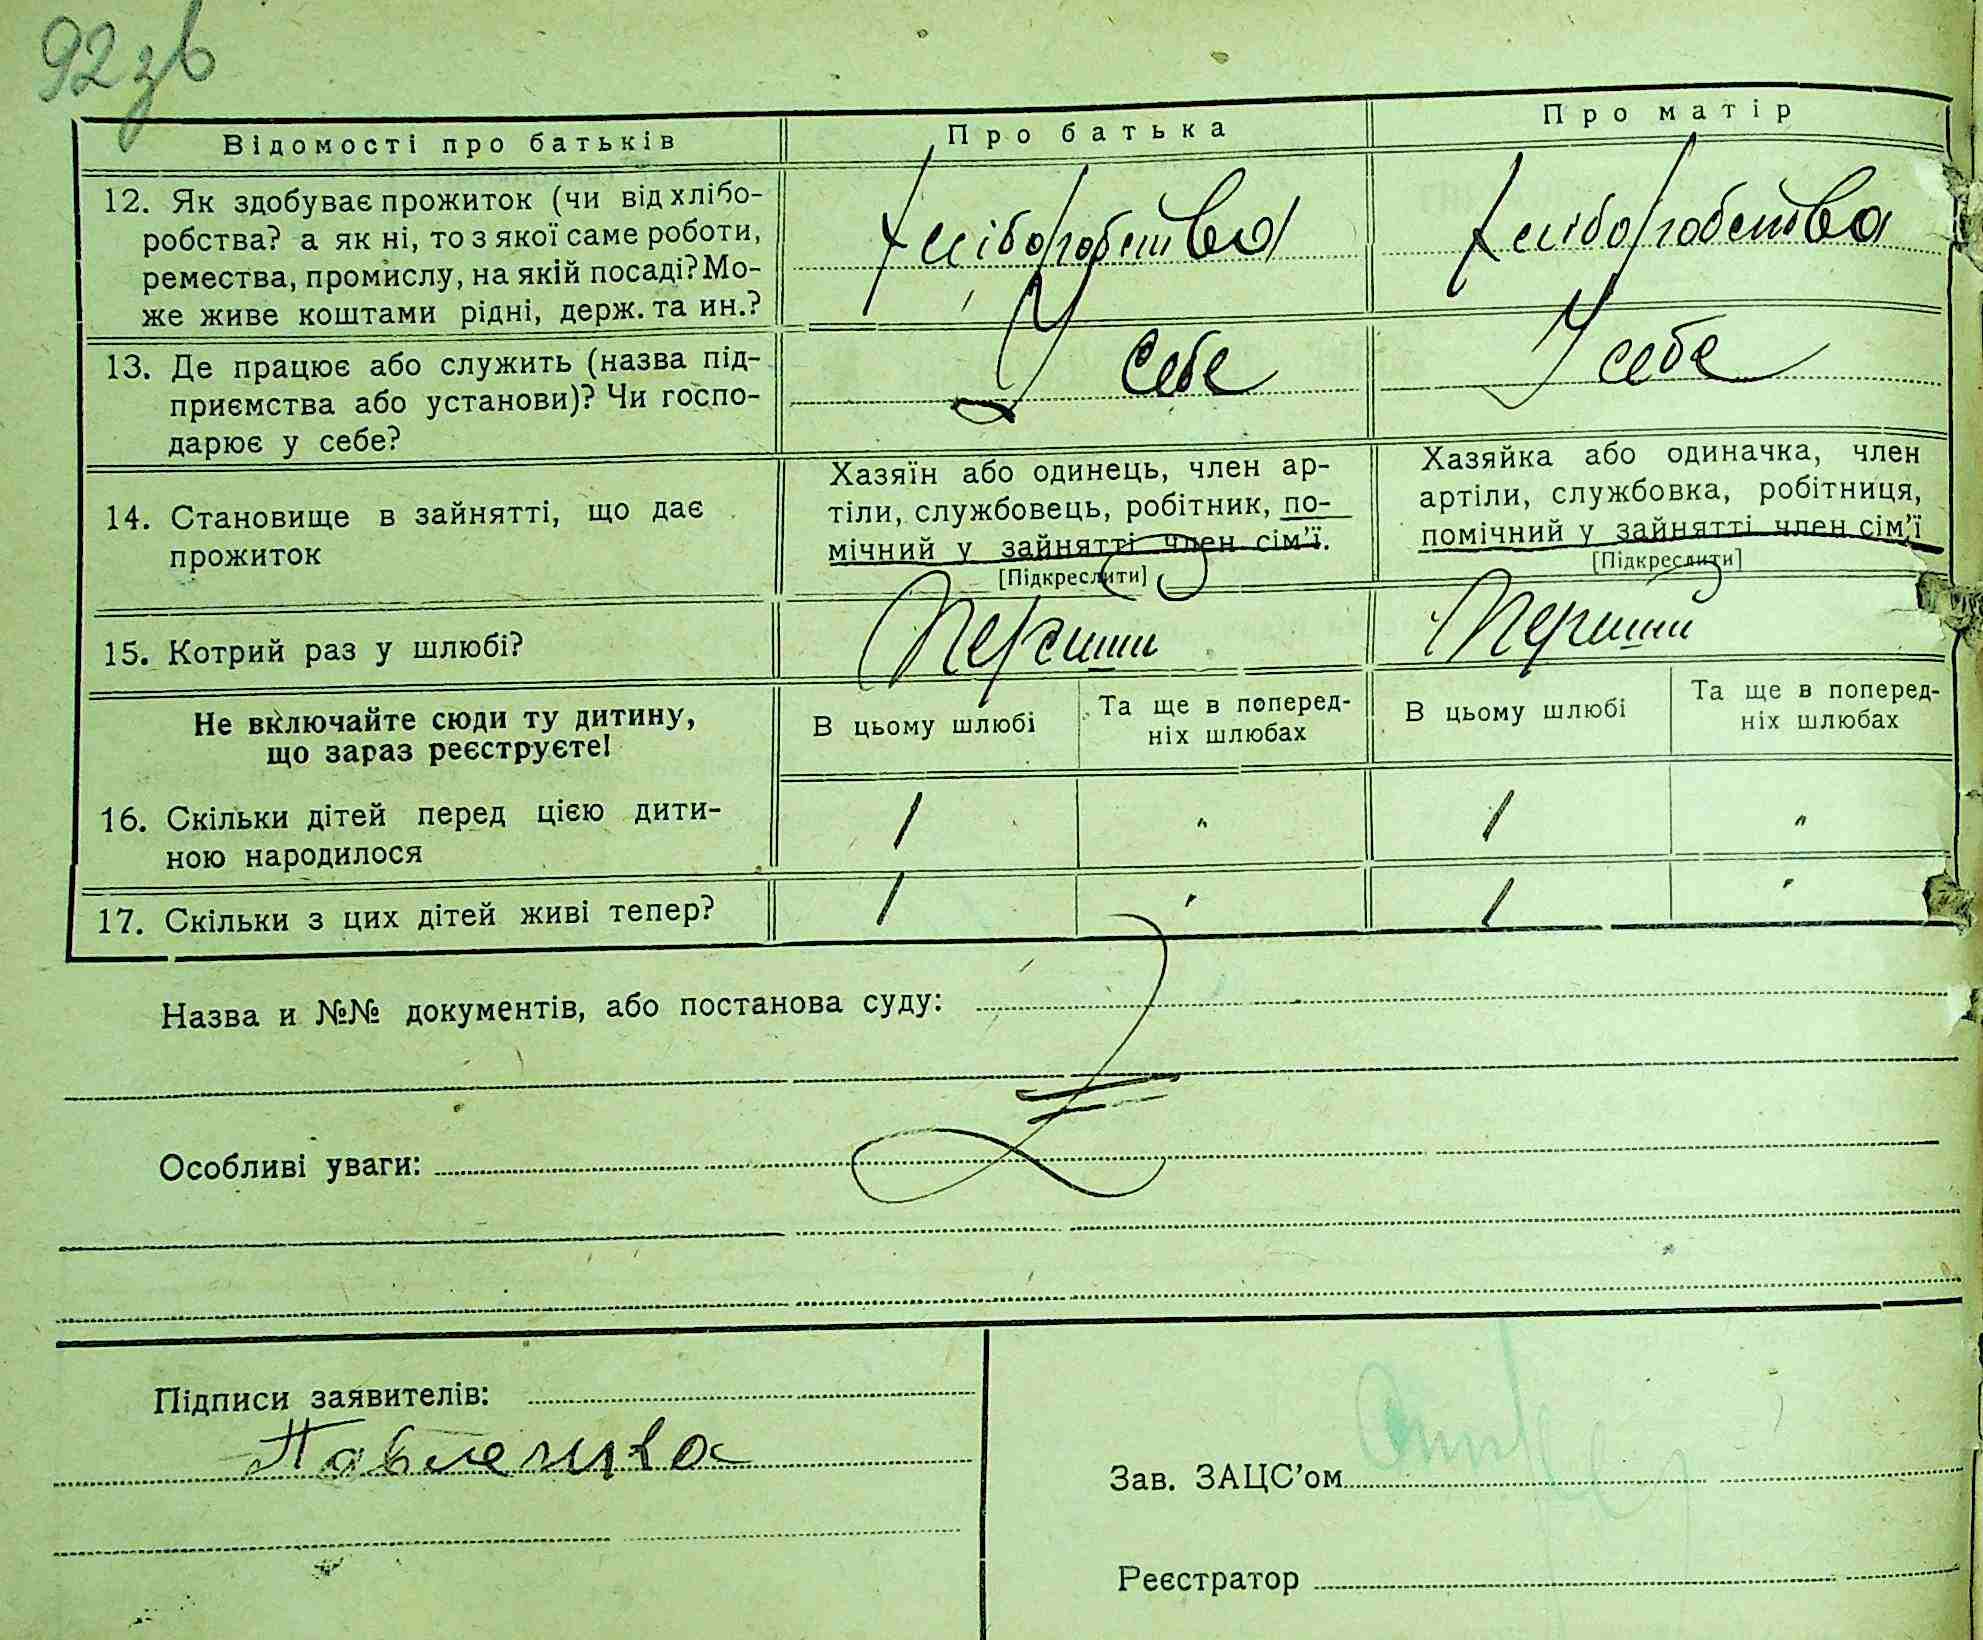 92 зв
Відомості про батьків Про батька Про матір
12. Як здобуває прожиток (чи від хлібо-
робства? а як ні, то з якої саме роботи,
ремества, промислу, на якій посаді? Мо-
же живе коштами рідні, держ. та ин.?
хліборобство хліборобство
13. Де працює або служить (назва під-
приємства або установи)? Чи госпо-
дарює у себе?
У себе У себе
14. Становище в зайнятті, що дає
прожиток
Хазяїн або одинець, член ар-
тіли, службовець, робітник, по-
мічний у зайнятті член сім'ї.
[Підкреслити]
Хазяйка або одиначка, член
артіли, службовка, робітниця,
помічний у зайнятті член сім'ї
[Підкреслити]
15. Котрий раз у шлюбі? Перший Перший
Не включайте сюди ту дитину,
що зараз реєструєте!
В цьому шлюбі
Та ще в поперед-
ніх шлюбах
В цьому шлюбі
Та ще в поперед-
ніх шлюбах
16. Скільки дітей перед цією дити-
ною народилося
1 " 1 "
17. Скільки з цих дітей живі тепер? 1 " 1 "
Назва и №№ документів, або постанова суду:
Особливі уваги:
Підписи заявителів:
Павленко
Зав. ЗАЦС'ом
Реєстратор